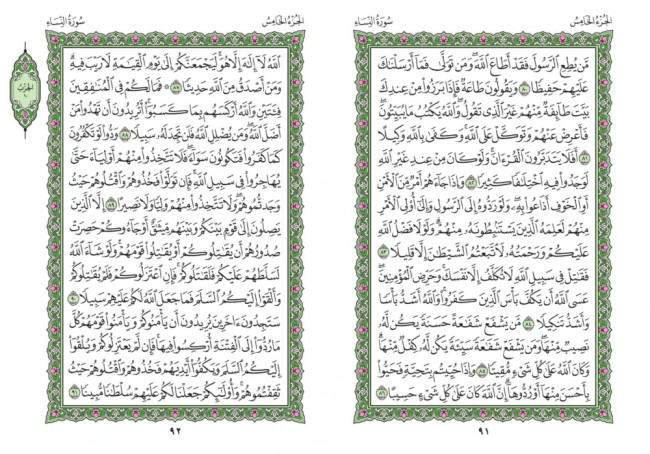 الجزء الخامس
سورة النساء
مَّن يُطِعِ ٱلرَّسُولَ فَقَدۡ أَطَاعَ ٱللَّهَۖ وَمَن تَوَلَّىٰ فَمَآ أَرۡسَلۡنَٰكَ
عَلَيۡهِمۡ حَفِيظٗا ٨٠ وَيَقُولُونَ طَاعَةٞ فَإِذَا بَرَزُواْ مِنۡ عِندِكَ
بَيَّتَ طَآئِفَةٞ مِّنۡهُمۡ غَيۡرَ ٱلَّذِي تَقُولُۖ وَٱللَّهُ يَكۡتُبُ مَا يُبَيِّتُونَۖ
فَأَعۡرِضۡ عَنۡهُمۡ وَتَوَكَّلۡ عَلَى ٱللَّهِۚ وَكَفَىٰ بِٱللَّهِ وَكِيلًا
٨١ أَفَلَا يَتَدَبَّرُونَ ٱلۡقُرۡءَانَۚ وَلَوۡ كَانَ مِنۡ عِندِ غَيۡرِ ٱللَّهِ
لَوَجَدُواْ فِيهِ ٱخۡتِلَٰفٗا كَثِيرٗا ٨٢ وَإِذَا جَآءَهُمۡ أَمۡرٞ مِّنَ ٱلۡأَمۡنِ
أَوِ ٱلۡخَوۡفِ أَذَاعُواْ بِهِۦۖ وَلَوۡ رَدُّوهُ إِلَى ٱلرَّسُولِ وَإِلَىٰٓ أُوْلِي ٱلۡأَمۡرِ
مِنۡهُمۡ لَعَلِمَهُ ٱلَّذِينَ يَسۡتَنۢبِطُونَهُۥ مِنۡهُمۡۗ وَلَوۡلَا فَضۡلُ ٱللَّهِ
عَلَيۡكُمۡ وَرَحۡمَتُهُۥ لَٱتَّبَعۡتُمُ ٱلشَّيۡطَٰنَ إِلَّا قَلِيلٗا ٨٣
فَقَٰتِلۡ فِي سَبِيلِ ٱللَّهِ لَا تُكَلَّفُ إِلَّا نَفۡسَكَۚ وَحَرِّضِ ٱلۡمُؤۡمِنِينَۖ
عَسَى ٱللَّهُ أَن يَكُفَّ بَأۡسَ ٱلَّذِينَ كَفَرُواْۚ وَٱللَّهُ أَشَدُّ بَأۡسٗا
وَأَشَدُّ تَنكِيلٗا ٨٤ مَّن يَشۡفَعۡ شَفَٰعَةً حَسَنَةٗ يَكُن لَّهُۥ
نَصِيبٞ مِّنۡهَاۖ وَمَن يَشۡفَعۡ شَفَٰعَةٗ سَيِّئَةٗ يَكُن لَّهُۥ كِفۡلٞ مِّنۡهَاۗ
وَكَانَ ٱللَّهُ عَلَىٰ كُلِّ شَيۡءٖ مُّقِيتٗا ٨٥ وَإِذَا حُيِّيتُم بِتَحِيَّةٖ فَحَيُّواْ
بِأَحۡسَنَ مِنۡهَآ أَوۡ رُدُّوهَآۗ إِنَّ ٱللَّهَ كَانَ عَلَىٰ كُلِّ شَيۡءٍ حَسِيبًا ٨٦
٩١
الجزء الخامس
سورة النساء
ٱللَّهُ لَآ إِلَٰهَ إِلَّا هُوَۚ لَيَجۡمَعَنَّكُمۡ إِلَىٰ يَوۡمِ ٱلۡقِيَٰمَةِ لَا رَيۡبَ فِيهِۗ
وَمَنۡ أَصۡدَقُ مِنَ ٱللَّهِ حَدِيثٗا ٨٧ ۞ فَمَا لَكُمۡ فِي ٱلۡمُنَٰفِقِينَ
فِئَتَيۡنِ وَٱللَّهُ أَرۡكَسَهُم بِمَا كَسَبُوٓاْۚ أَتُرِيدُونَ أَن تَهۡدُواْ مَنۡ
أَضَلَّ ٱللَّهُۖ وَمَن يُضۡلِلِ ٱللَّهُ فَلَن تَجِدَ لَهُۥ سَبِيلٗا ٨٨ وَدُّواْ لَوۡ تَكۡفُرُونَ
كَمَا كَفَرُواْ فَتَكُونُونَ سَوَآءٗۖ فَلَا تَتَّخِذُواْ مِنۡهُمۡ أَوۡلِيَآءَ حَتَّىٰ
يُهَاجِرُواْ فِي سَبِيلِ ٱللَّهِۚ فَإِن تَوَلَّوۡاْ فَخُذُوهُمۡ وَٱقۡتُلُوهُمۡ حَيۡثُ
وَجَدتُّمُوهُمۡۖ وَلَا تَتَّخِذُواْ مِنۡهُمۡ وَلِيّٗا وَلَا نَصِيرًا ٨٩ إِلَّا ٱلَّذِينَ
يَصِلُونَ إِلَىٰ قَوۡمِۭ بَيۡنَكُمۡ وَبَيۡنَهُم مِّيثَٰقٌ أَوۡ جَآءُوكُمۡ حَصِرَتۡ
صُدُورُهُمۡ أَن يُقَٰتِلُوكُمۡ أَوۡ يُقَٰتِلُواْ قَوۡمَهُمۡۚ وَلَوۡ شَآءَ ٱللَّهُ
لَسَلَّطَهُمۡ عَلَيۡكُمۡ فَلَقَٰتَلُوكُمۡۚ فَإِنِ ٱعۡتَزَلُوكُمۡ فَلَمۡ يُقَٰتِلُوكُمۡ
وَأَلۡقَوۡاْ إِلَيۡكُمُ ٱلسَّلَمَ فَمَا جَعَلَ ٱللَّهُ لَكُمۡ عَلَيۡهِمۡ سَبِيلٗا ٩٠
سَتَجِدُونَ ءَاخَرِينَ يُرِيدُونَ أَن يَأۡمَنُوكُمۡ وَيَأۡمَنُواْ قَوۡمَهُمۡ كُلَّ
مَا رُدُّوٓاْ إِلَى ٱلۡفِتۡنَةِ أُرۡكِسُواْ فِيهَاۚ فَإِن لَّمۡ يَعۡتَزِلُوكُمۡ وَيُلۡقُوٓاْ
إِلَيۡكُمُ ٱلسَّلَمَ وَيَكُفُّوٓاْ أَيۡدِيَهُمۡ فَخُذُوهُمۡ وَٱقۡتُلُوهُمۡ حَيۡثُ
ثَقِفۡتُمُوهُمۡۚ وَأُوْلَٰٓئِكُمۡ جَعَلۡنَا لَكُمۡ عَلَيۡهِمۡ سُلۡطَٰنٗا مُّبِينٗا ٩١
٩٢